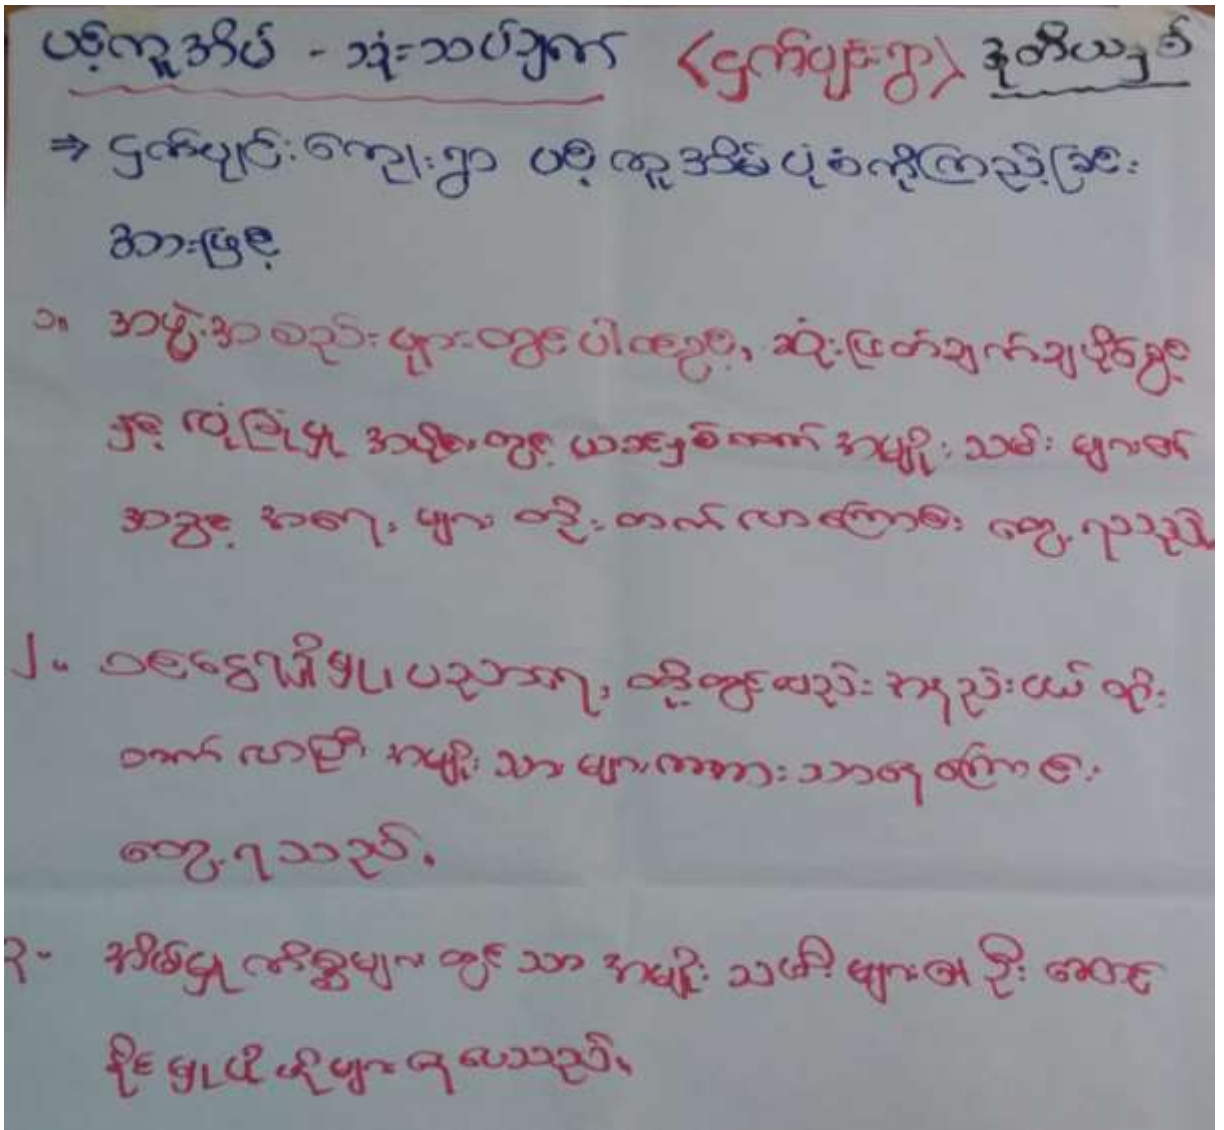 ပင့်ကူအိမ် - သုံးသပ်ချက် <ငှက်ပျား​ရွာ> ဒုတိယနှစ်
⇒ ငှက်ပျင်းကျေးရွာ ပင့်ကူအိမ်ပုံစံကိုကြည့်ခြင်း
အားဖြင့်
၁။ အဖွဲ့အစည်းများတွင်ပါဝင်ခွင့်, ဆုံးဖြတ်ချက်ချပိုင်ခွင့်
နှင့် လုံခြုံမှု အပိုင်းတွင် ယခင်နှစ်ထက် အမျိုးသမီးများ၏
အခွင့်အရေးများ တိုးတက်လာကြောင်း တွေ့ရသည်။
၂။ ဝင်ငွေရရှိမှု, ပညာရေး, တို့တွင်လည်း အနည်းငယ် တိုး
တက်လာပြီး အမျိုးသားများကအားသာနေကြောင်း
တွေ့ရသည်။
၃။ အိမ်မှုကိစ္စများတွင်သာ အမျိုးသမီးများ၏ ဦးဆောင်
နိုင်မှုပိုမိုများနေပေသည်။